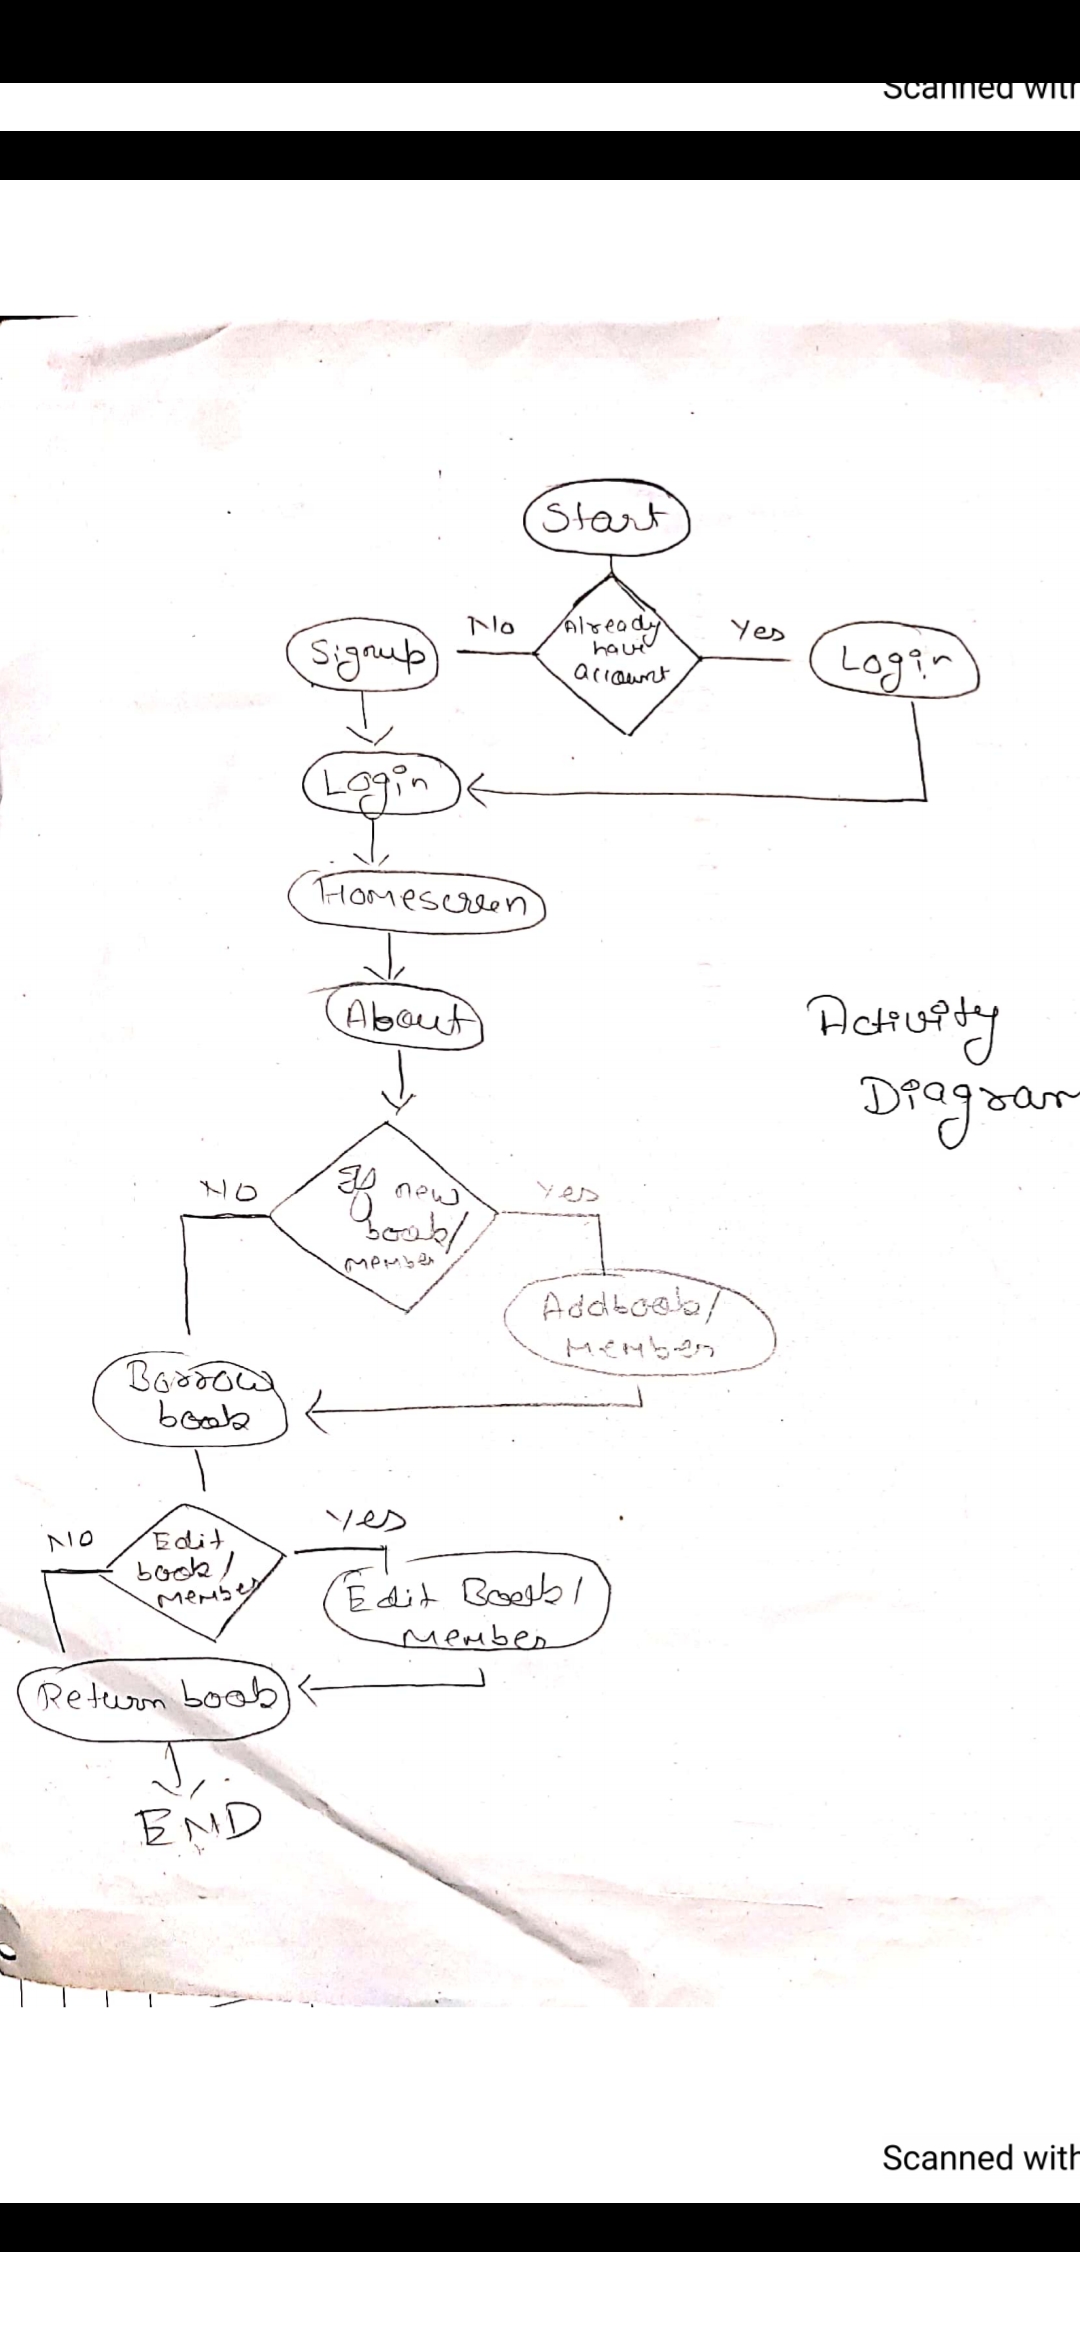 Scanned with
Start
No
Already
have
account
Yes
Signup
Login
Login
Homescreen
About
Activity
Diagram
NO
If new
book/
member
Yes
Addbook/
Member
Borrow
book
NO
Edit
book/
member
Yes
Edit Book/
Member
Return book
END
Scanned with